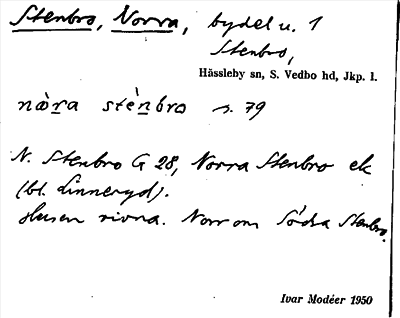 Stenbro, Norra, bydel u. 1
Stenbro,
Hässleby sn, S. Vedbo hd, Jkp. l.
nòra stènbro s. 79
N. Stenbro G 28, Norra Stenbro ek
(bl. Linneryd).
Husen rivna. Norr om Södra Stenbro.
Ivar Modéer 1950